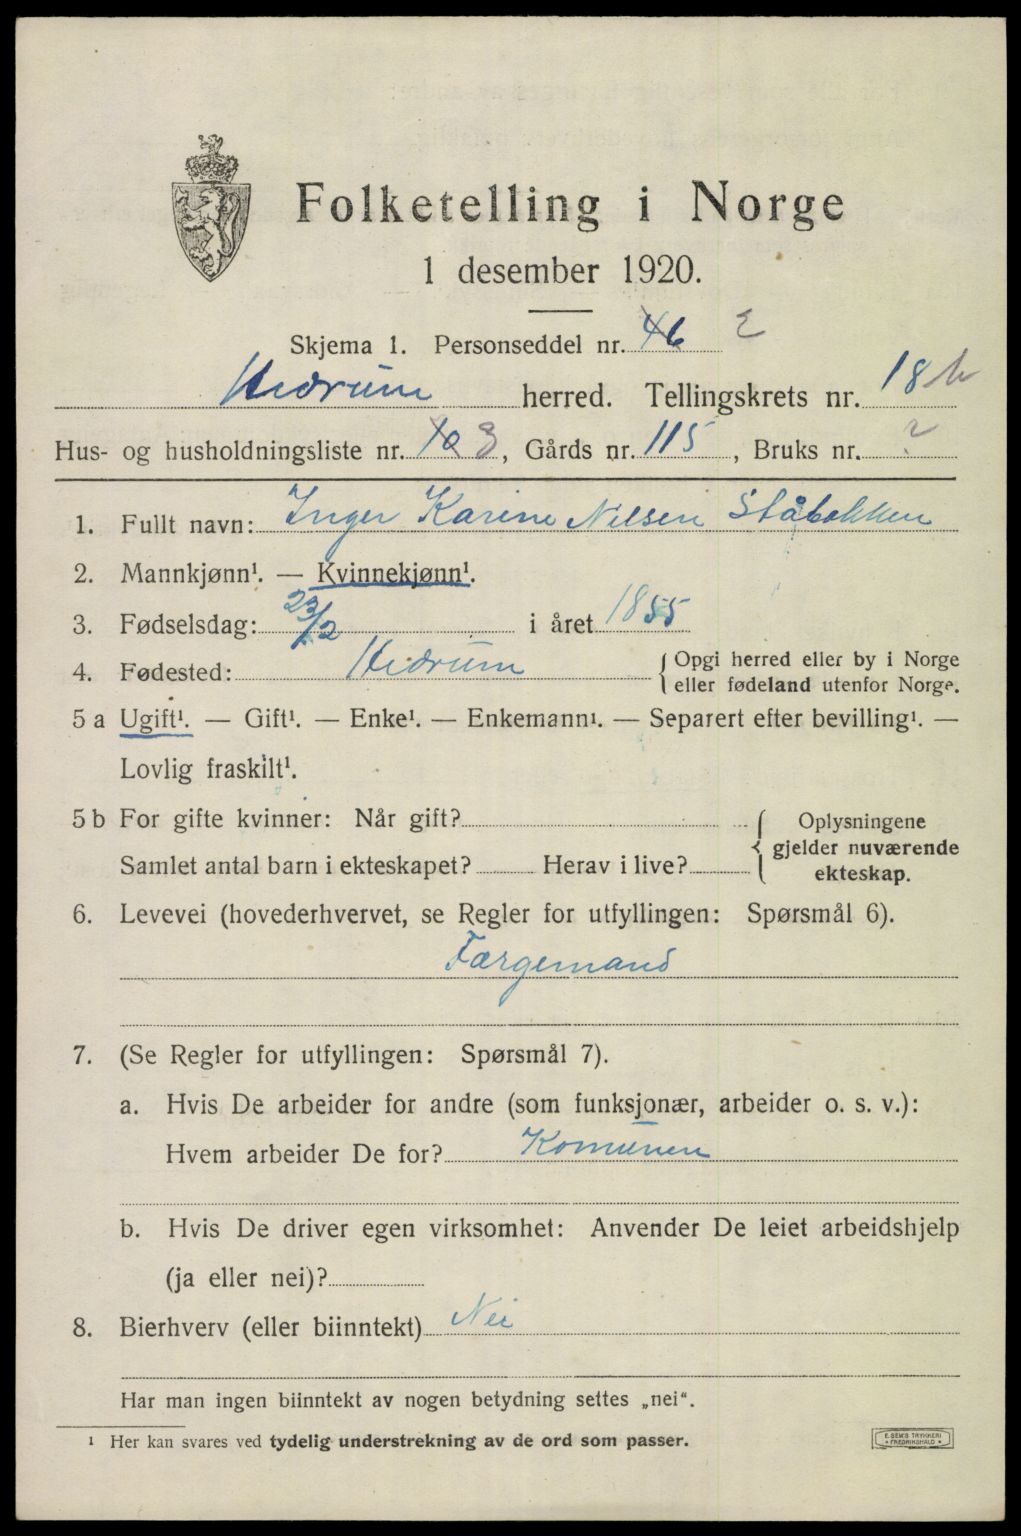 Folketelling i Norge
1 desember 1920.
Skjema 1. Personseddel nr. 46 2
Hedrum herred. Tellingskrets nr. 18 b
Hus- og husholdningsliste nr. 10 3, Gårds nr. 115, Bruks nr. ?
1. Fullt navn: Inger Karine Nilsen Ståbakken
2. Mannkjønn¹. — Kvinnekjønn¹.
3. Fødselsdag: 23/2 i året 1855
4. Fødested: Hedrum { Opgi herred eller by i Norge
eller fødeland utenfor Norge.
5 a Ugift¹. — Gift¹. — Enke¹. — Enkemann¹. — Separert efter bevilling¹. —
Lovlig fraskilt¹.
5 b For gifte kvinner: Når gift? { Oplysningene
gjelder nuværende
Samlet antal barn i ekteskapet? Herav i live? ekteskap.
6. Levevei (hovederhvervet, se Regler for utfyllingen: Spørsmål 6).
Færgemand
7. (Se Regler for utfyllingen: Spørsmål 7).
a. Hvis De arbeider for andre (som funksjonær, arbeider o. s. v.):
Hvem arbeider De for? Komunen
b. Hvis De driver egen virksomhet: Anvender De leiet arbeidshjelp
(ja eller nei)?
8. Bierhverv (eller biinntekt) Nei
Har man ingen biinntekt av nogen betydning settes „nei“.
¹ Her kan svares ved tydelig understrekning av de ord som passer.
E. SEM'S TRYKKERI
• FREDRIKSHALD •